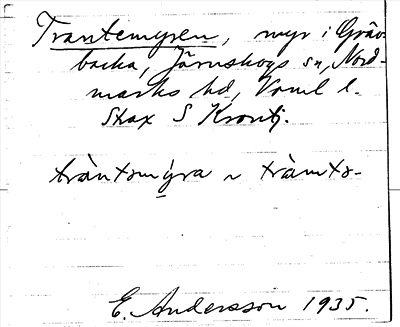 Trantemyren, myr i Gräv-
backa, Järnskogs sn, Nord-
marks hd, Vrml l.
Strax S Krontj.
tràntsmýra ~ tràmts-
E. Andersson 1935.